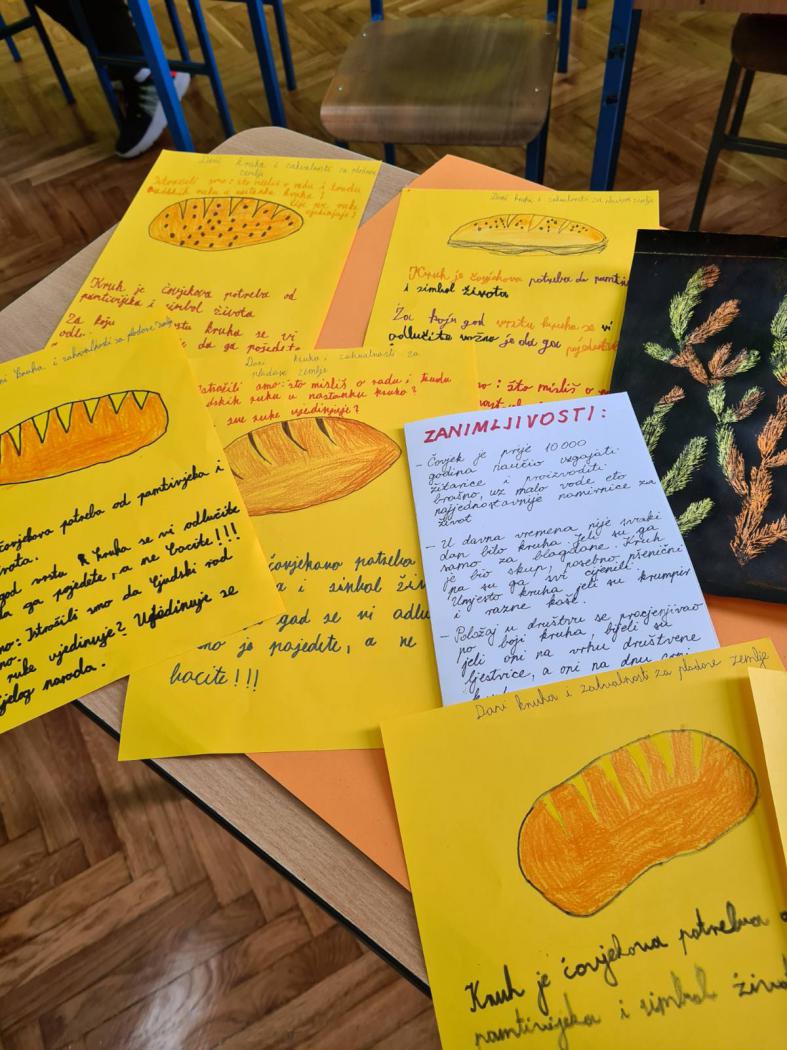 Dani kruha i zahvalnosti za plodove
zemlje
Istražili smo: što misliš o radu i trudu
ljudskih ruku u nastanku kruha?
sve ruke
ujedinjuje?
Kruh je čovjekova potreba od
pamtivijeka i simbol života
Za koju vrstu kruha se vi
je da ga pojedete
Dani kruha i zahvalnosti za plodove zemlje
Kruh je čovjekova potreba da pamti
i simbol života
Za koju god vrstu kruha se vi
odlučite važno je da ga pojedete
što misliš o
Dani kruha i zahvalnosti za plodove zemlje
čovjekova potreba od pamtivijeka i
god vrstu kruha se vi odlučite
da ga pojedete, a ne bacite!!!
Istražili smo da ljudski rad
ruke ujedinjuje? Ujedinjuje se
cijelog naroda.
Dani kruha i zahvalnosti za
plodove zemlje
Istražili smo: što misliš o radu i trudu
ljudskih ruku u nastanku kruha?
sve ruke ujedinjuje?
čovjekova potreba
i simbol
god se vi
je pojedete, a ne
bacite!!!
ZANIMLJIVOSTI:
- Čovjek je prije 10 000
godina naučio uzgajati
žitarice i proizvoditi
brašno, uz malo vode eto
najjednostavnije namirnice za
život
- U davna vremena nije svaki
dan bilo kruha. Jeli su ga
samo za blagdane. Kruh
je bio skup, posebno pšenični
pa su ga svi cijenili.
Umjesto kruha jeli su krumpir
i razne kaše.
- Položaj u društvu se procjenjivao
po boji kruha, bijeli su
jeli oni na vrhu društvene
ljestvice, a oni na dnu crni
Dani kruha i zahvalnosti za plodove zemlje
Kruh je čovjekova potreba
pamtivijeka i simbol